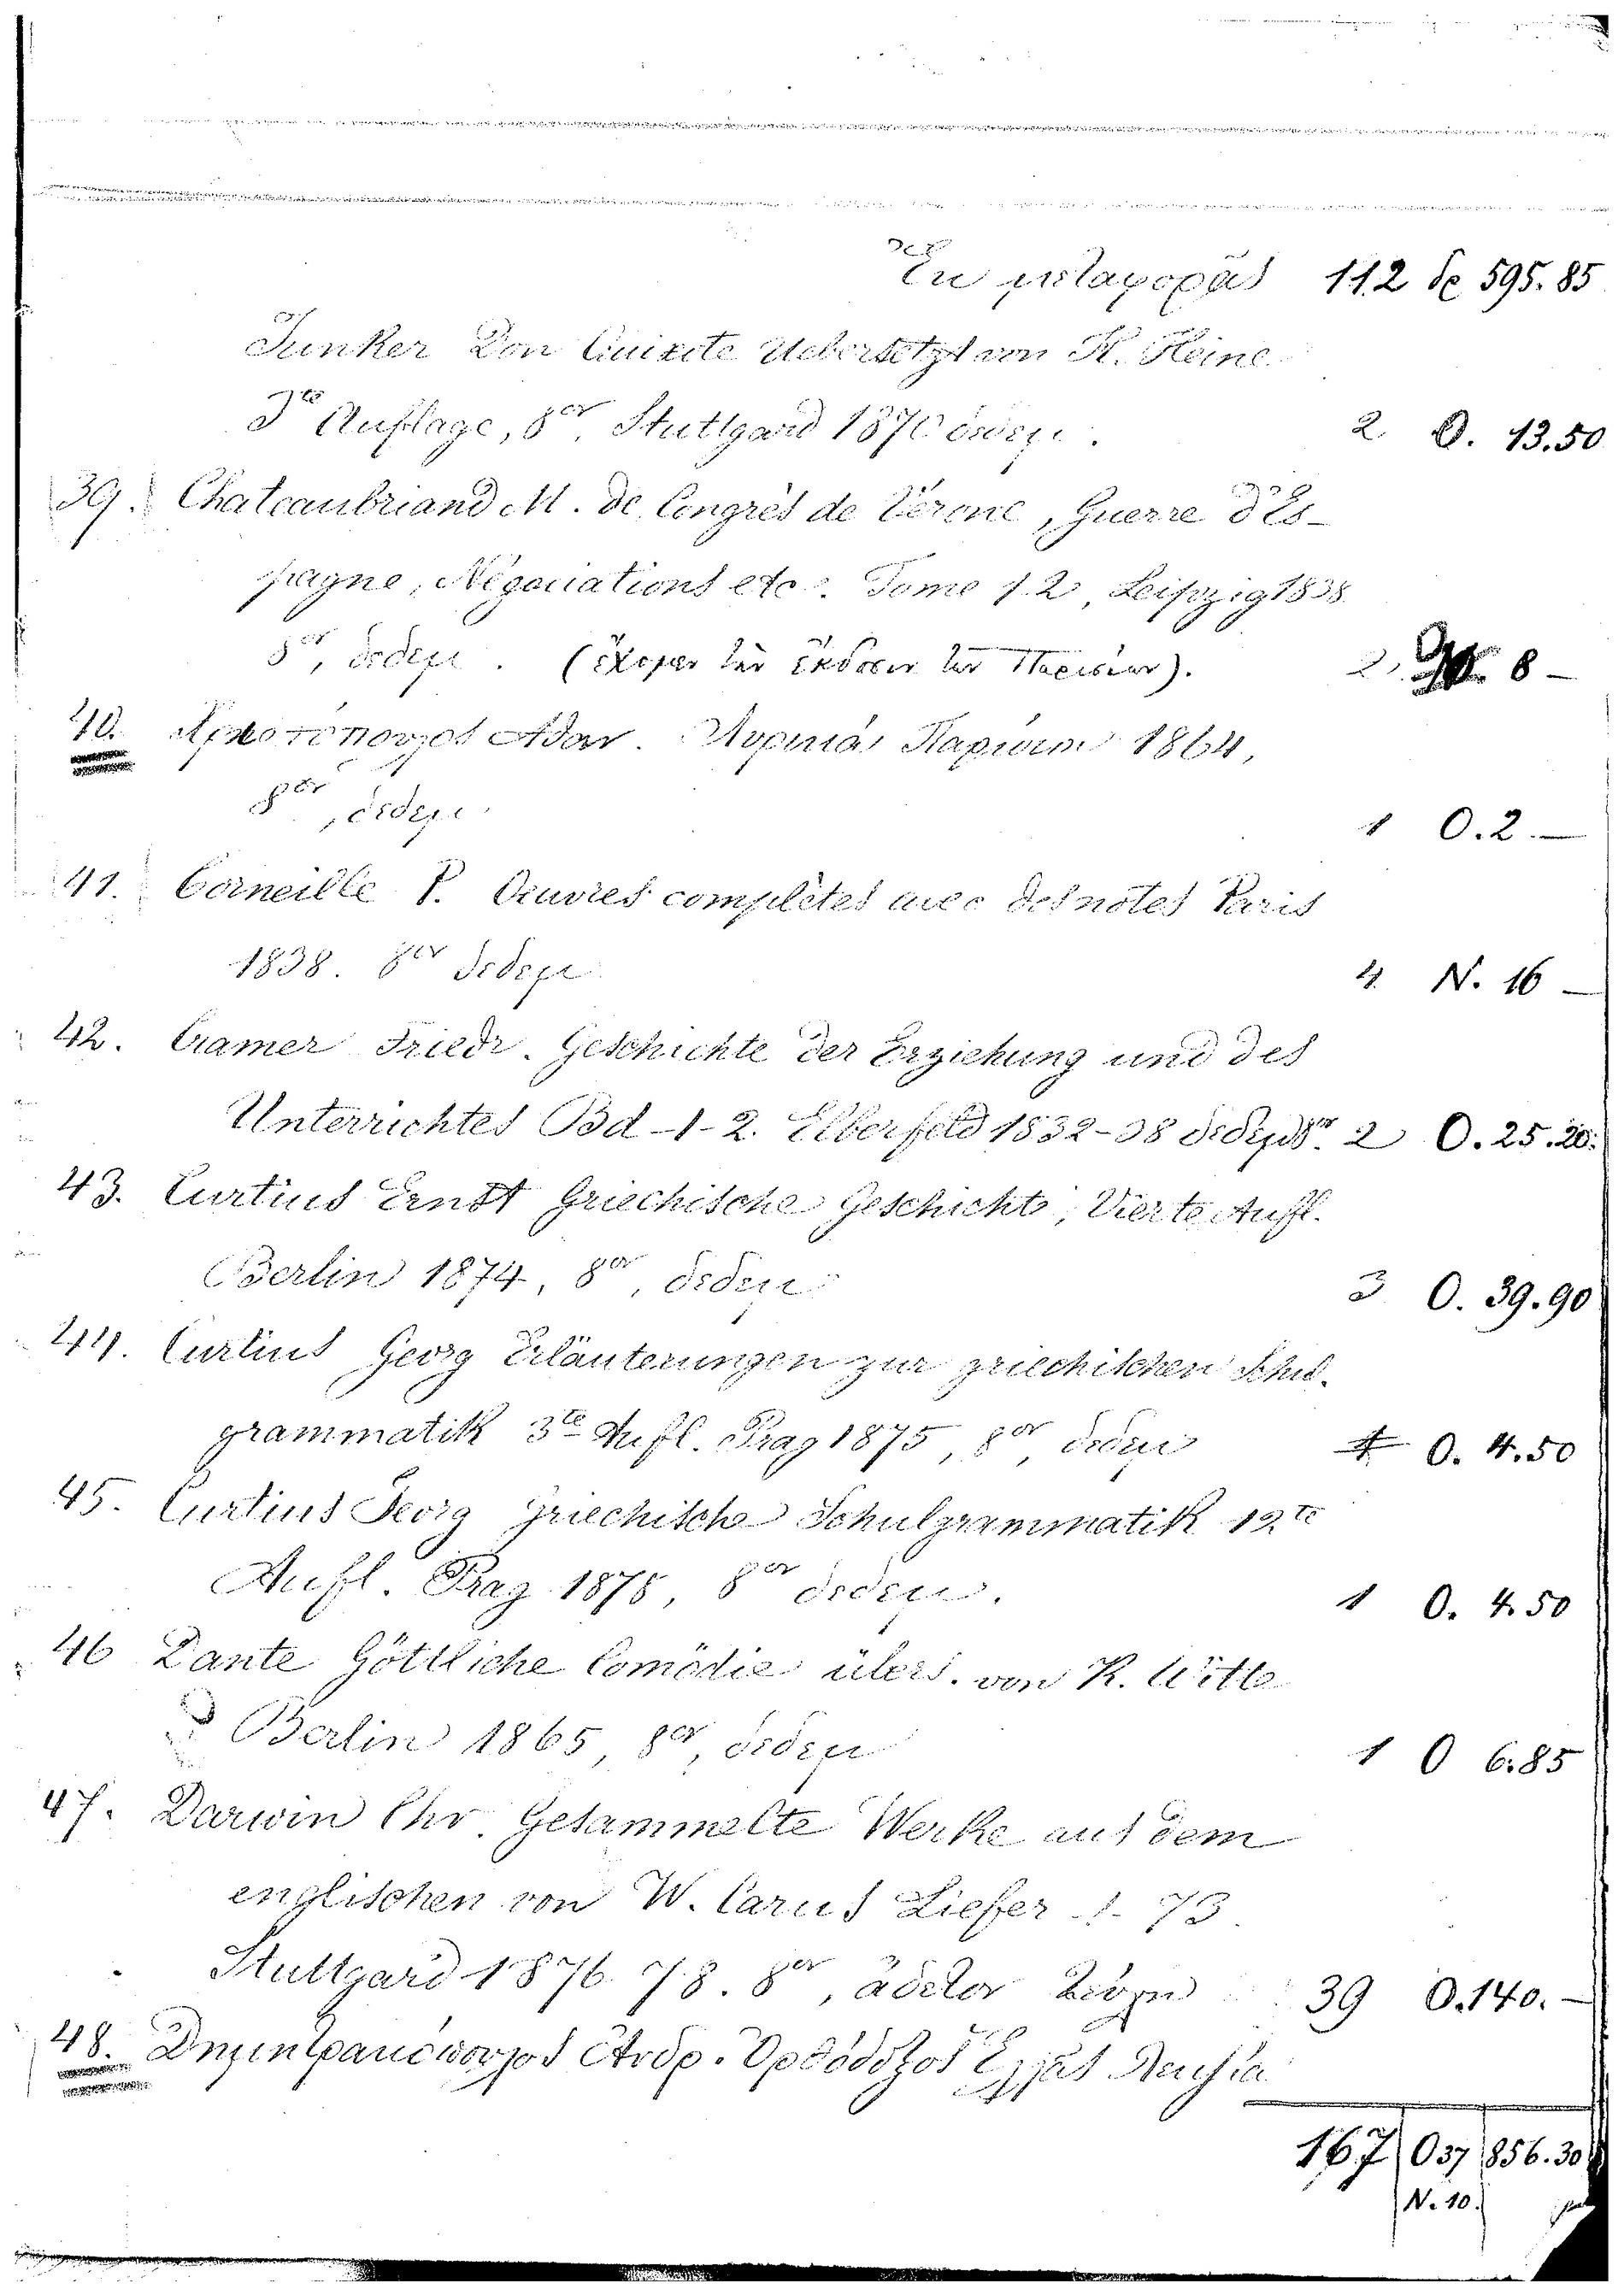 Ἐκ μεταφορᾶς 112 δρ 595.85
Junker Don Quixote Uebersetzt von H. Heine
3te Auflage, 8ον Stuttgard 1870 δεδεμ. 2 O. 13.50
39. Chateaubriand M. de Congrès de Verone, Guerre d'Es-
pagne, Négociations etc. Tome 1.2, Leipzig 1838
8ον, δεδεμ. (ἔχομεν τὴν ἔκδοσιν τῶν Παρισίων). 2 8 —
40. Λυρικά, Παρίσιοι 1864,
8ον, δεδεμ. 1 O. 2. —
41. Corneille P. Oeuvres complètes avec des notes Paris
1838. 8ον δεδεμ 4 N. 16 —
42. Cramer Friedr. Geschichte der Erziehung und des
Unterrichtes Bd-1-2. Elberfeld 1832-38 δεδεμ 8ον. 2 O. 25.20.
43. Curtius Ernst Griechische Geschichte, Vierte Aufl.
Berlin 1874, 8ον, δεδεμ 3 O. 39.90
44. Curtius Georg Erläuterungen zur griechischen Schul-
grammatik 3te Aufl. Prag 1875, 8ον, δεδεμ 1 O. 4.50
45. Curtius Georg Griechische Schulgrammatik 12te
Aufl. Prag 1878, 8ον δεδεμ. 1 O. 4.50
46 Dante Göttliche Comödie übers. von K. Witte
Berlin 1865, 8ον, δεδεμ 1 O 6.85
47. Darwin Chr. Gesammelte Werke aus dem
englischen von W. Carus Liefer 1-73.
Stuttgard 1876 78. 8ον, ἄδετον 39 O. 140. —
48. Δημητρακόπουλος Ἀνδρ. Ὀρθόδοξος Ἑλλὰς
167 O 37 856.30
N. 10.